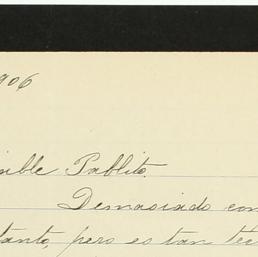 906
ible Pablito.
Demasiado con
tanto, pero es tan